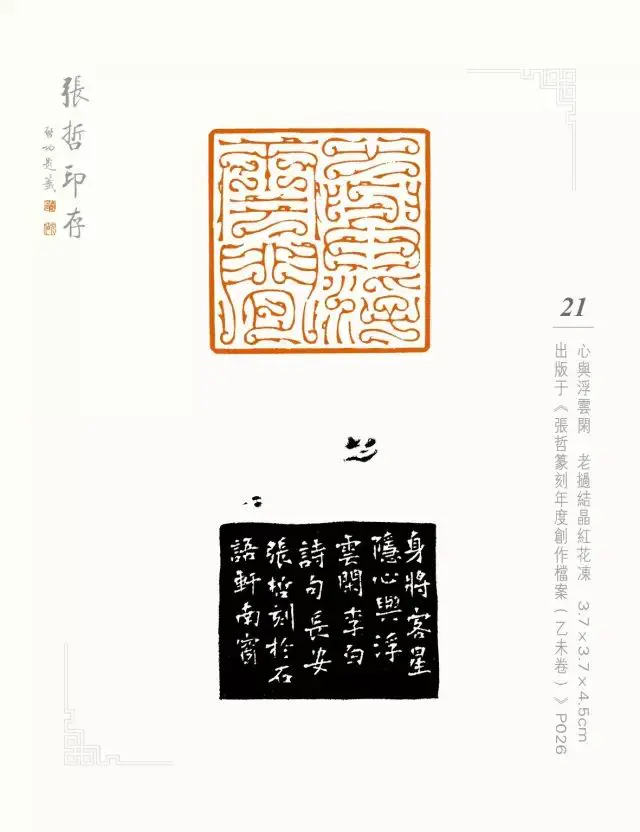 張哲印存
啓功題簽
21
心與浮雲閑 老撾結晶紅花凍 3.7×3.7×4.5cm
出版于《張哲篆刻年度創作檔案（乙未卷）》P026
身將客星
隱心與浮
雲閑李白
詩句長安
張哲刻於石
語軒南窗